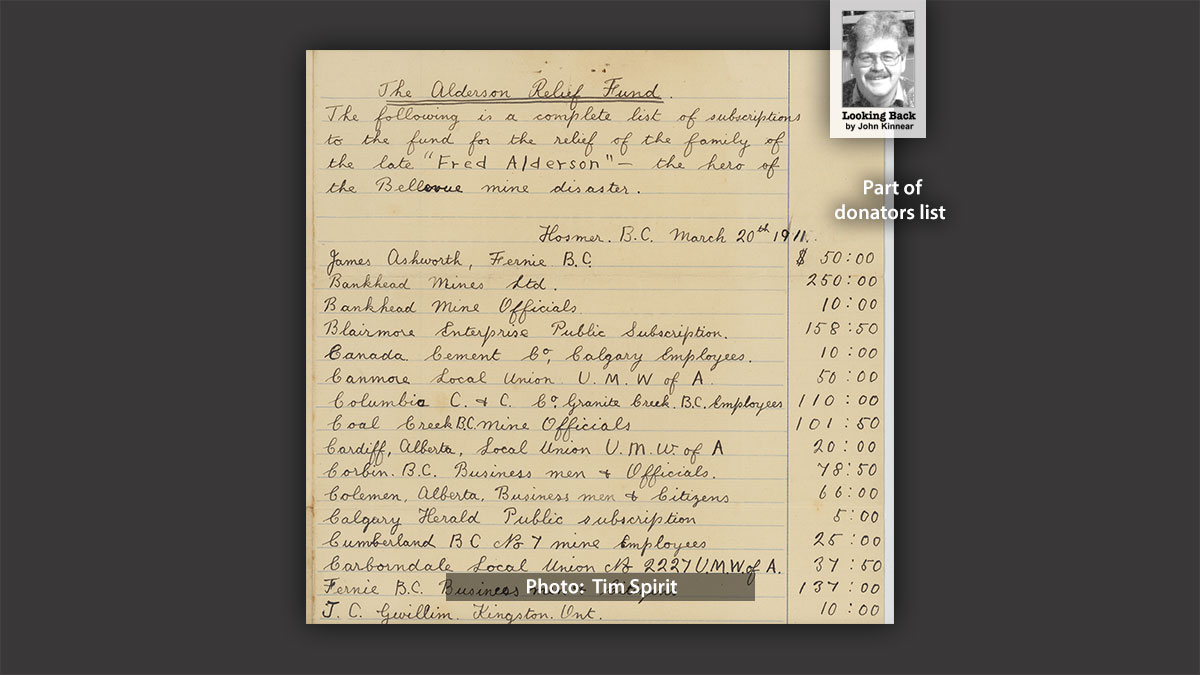 The Alderson Relief Fund.
The following is a complete list of subscriptions
to the fund for the relief of the family of
the late "Fred Alderson" — the hero of
the Bellevue mine disaster.
Hosmer. B.C. March 20th 1911.
James Ashworth, Fernie B.C. $ 50:00
Bankhead Mines Ltd. 250:00
Bankhead Mine Officials 10:00
Blairmore Enterprise Public Subscription. 158:50
Canada Cement Co, Calgary Employees. 10:00
Canmore Local Union U. M. W of A. 50:00
Columbia C. & C. Co. Granite Creek. B.C. Employees 110:00
Coal Creek B.C. mine Officials 101:50
Cardiff, Alberta, Local Union U.M.W. of A 20:00
Corbin. B.C. Business men & Officials. 78:50
Colemen, Alberta, Business men & Citizens 66:00
Calgary Herald Public subscription 5:00
Cumberland B C No 7 mine Employees 25:00
Carborndale Local Union No 2227 U.M.W. of A. 37:50
Fernie B.C. Business 137:00
J. C. Gwillim. Kingston. Ont. 10:00
Photo: Tim Spirit
Looking Back
by John Kinnear
Part of
donators list